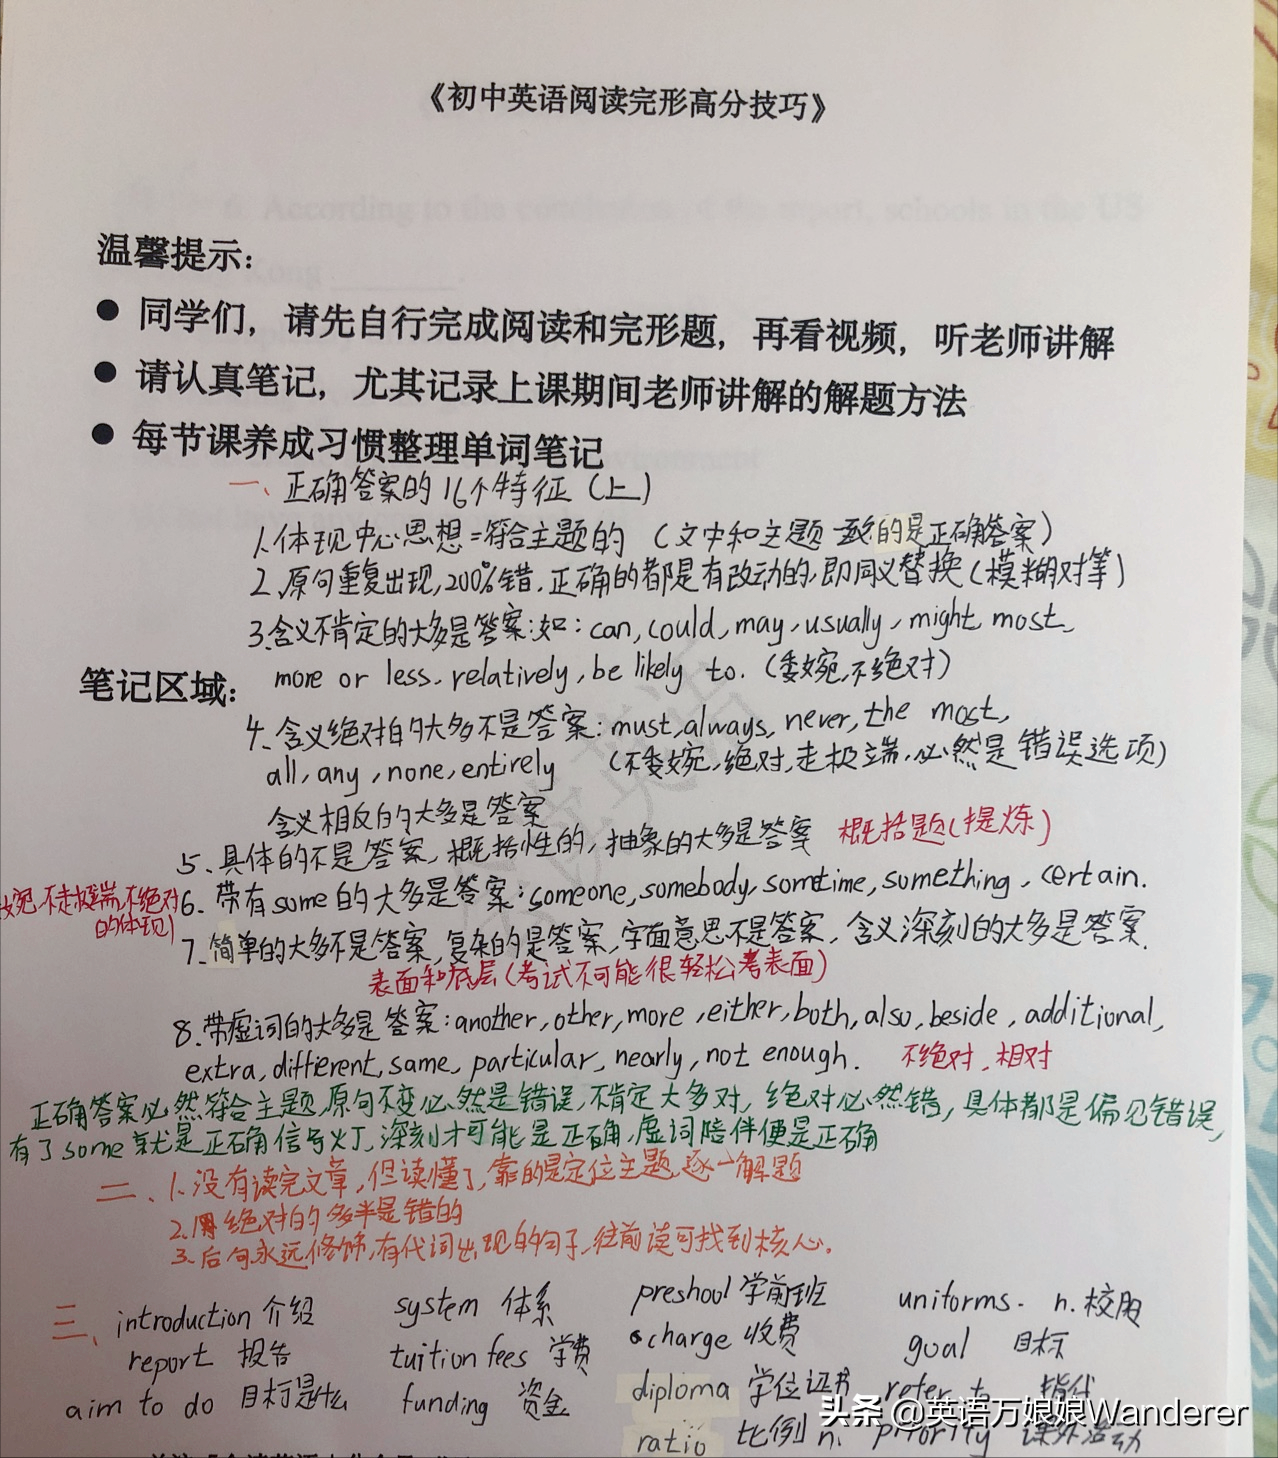 《初中英语阅读完形高分技巧》
温馨提示：
● 同学们，请先自行完成阅读和完形题，再看视频，听老师讲解
● 请认真笔记，尤其记录上课期间老师讲解的解题方法
● 每节课养成习惯整理单词笔记
一、正确答案的16个特征（上）
1.体现中心思想=符合主题的（文中和主题一致的是正确答案）
2.原句重复出现,200%错.正确的都是有改动的,即同义替换(模糊对等)
3.含义不肯定的大多是答案:如：can, could, may, usually, might, most,
笔记区域：
more or less, relatively, be likely to.（委婉,不绝对）
4.含义绝对的大多不是答案：must, always, never, the most,
all, any, none, entirely （不委婉,绝对,走极端,必然是错误选项）
含义相反的大多是答案
5.具体的不是答案,概括性的,抽象的大多是答案 概括题(提炼)
6.带有some的大多是答案：someone, somebody, somtime, sumething, certain.
不走极端,不绝对
的体现)
7.简单的大多不是答案,复杂的是答案,字面意思不是答案,含义深刻的大多是答案.
表面和底层(考试不可能很轻松考表面)
8.带虚词的大多是答案：another, other, more, either, both, also, beside, additional,
extra, different, same, particular, nearly, not enough. 不绝对,相对
正确答案必然符合主题,原句不变必然是错误,不肯定大多对,绝对必然错,具体都是偏见错误,
有了some就是正确信号灯,深刻才可能是正确,虚词陪伴便是正确
二、1.没有读完文章,但读懂了,靠的是定位主题,逐一解题
2.用绝对的多半是错的
3.后句永远修饰,有代词出现的句子,往前读可找到核心.
三、introduction 介绍 system 体系 preshool 学前班 uniforms. n.校服
report 报告 tuition fees 学费 charge 收费 goal 目标
aim to do 目标是什么 funding 资金 diploma 学位证书 refer to 指代
ratio 比例 n. priority 课外活动
头条 @英语万娘娘Wanderer